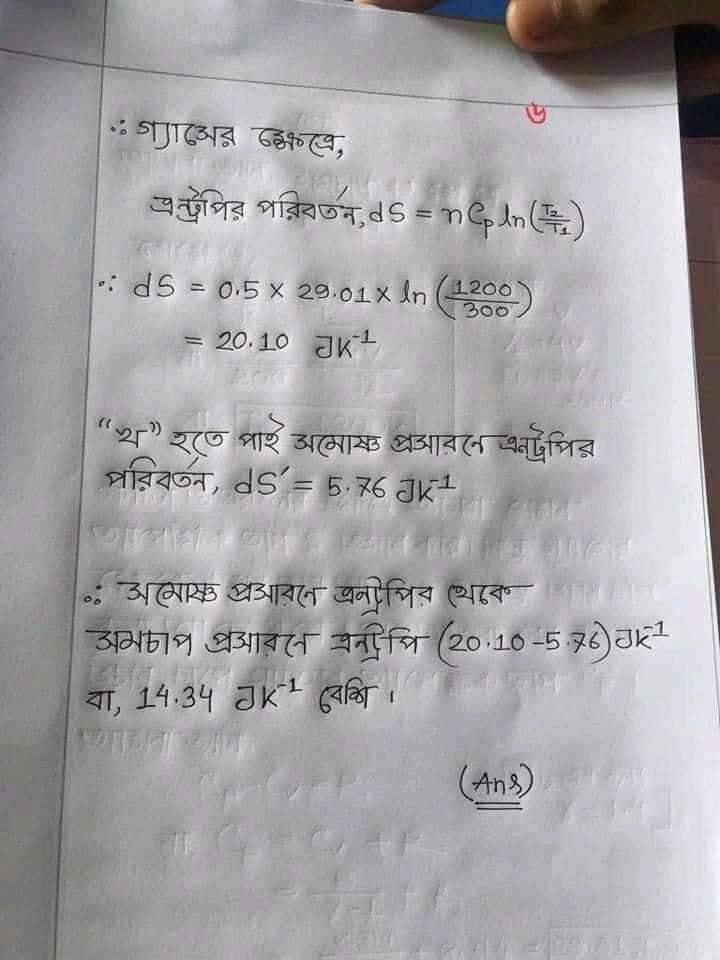 ৬
∴ গ্যাসের ক্ষেত্রে,
এন্ট্রপির পরিবর্তন, dS = nCp ln(T₂/T₁)
∴ dS = 0.5 × 29.01 × ln (1200/300)
= 20.10 JK⁻¹
"খ" হতে পাই সমোষ্ণ প্রসারনে এনট্রপির
পরিবর্তন, dS′ = 5.76 JK⁻¹
∴ সমোষ্ণ প্রসারনে এনট্রপির থেকে
সমচাপ প্রসারনে এনট্রপি (20.10 - 5.76) JK⁻¹
বা, 14.34 JK⁻¹ বেশি।
(Ans)